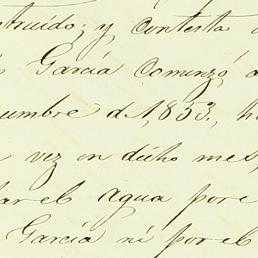 struido; y contesta
García comenzó a
umbre d 1,853.,
vez en dicho mes,
ar el agua por e
García ni por el